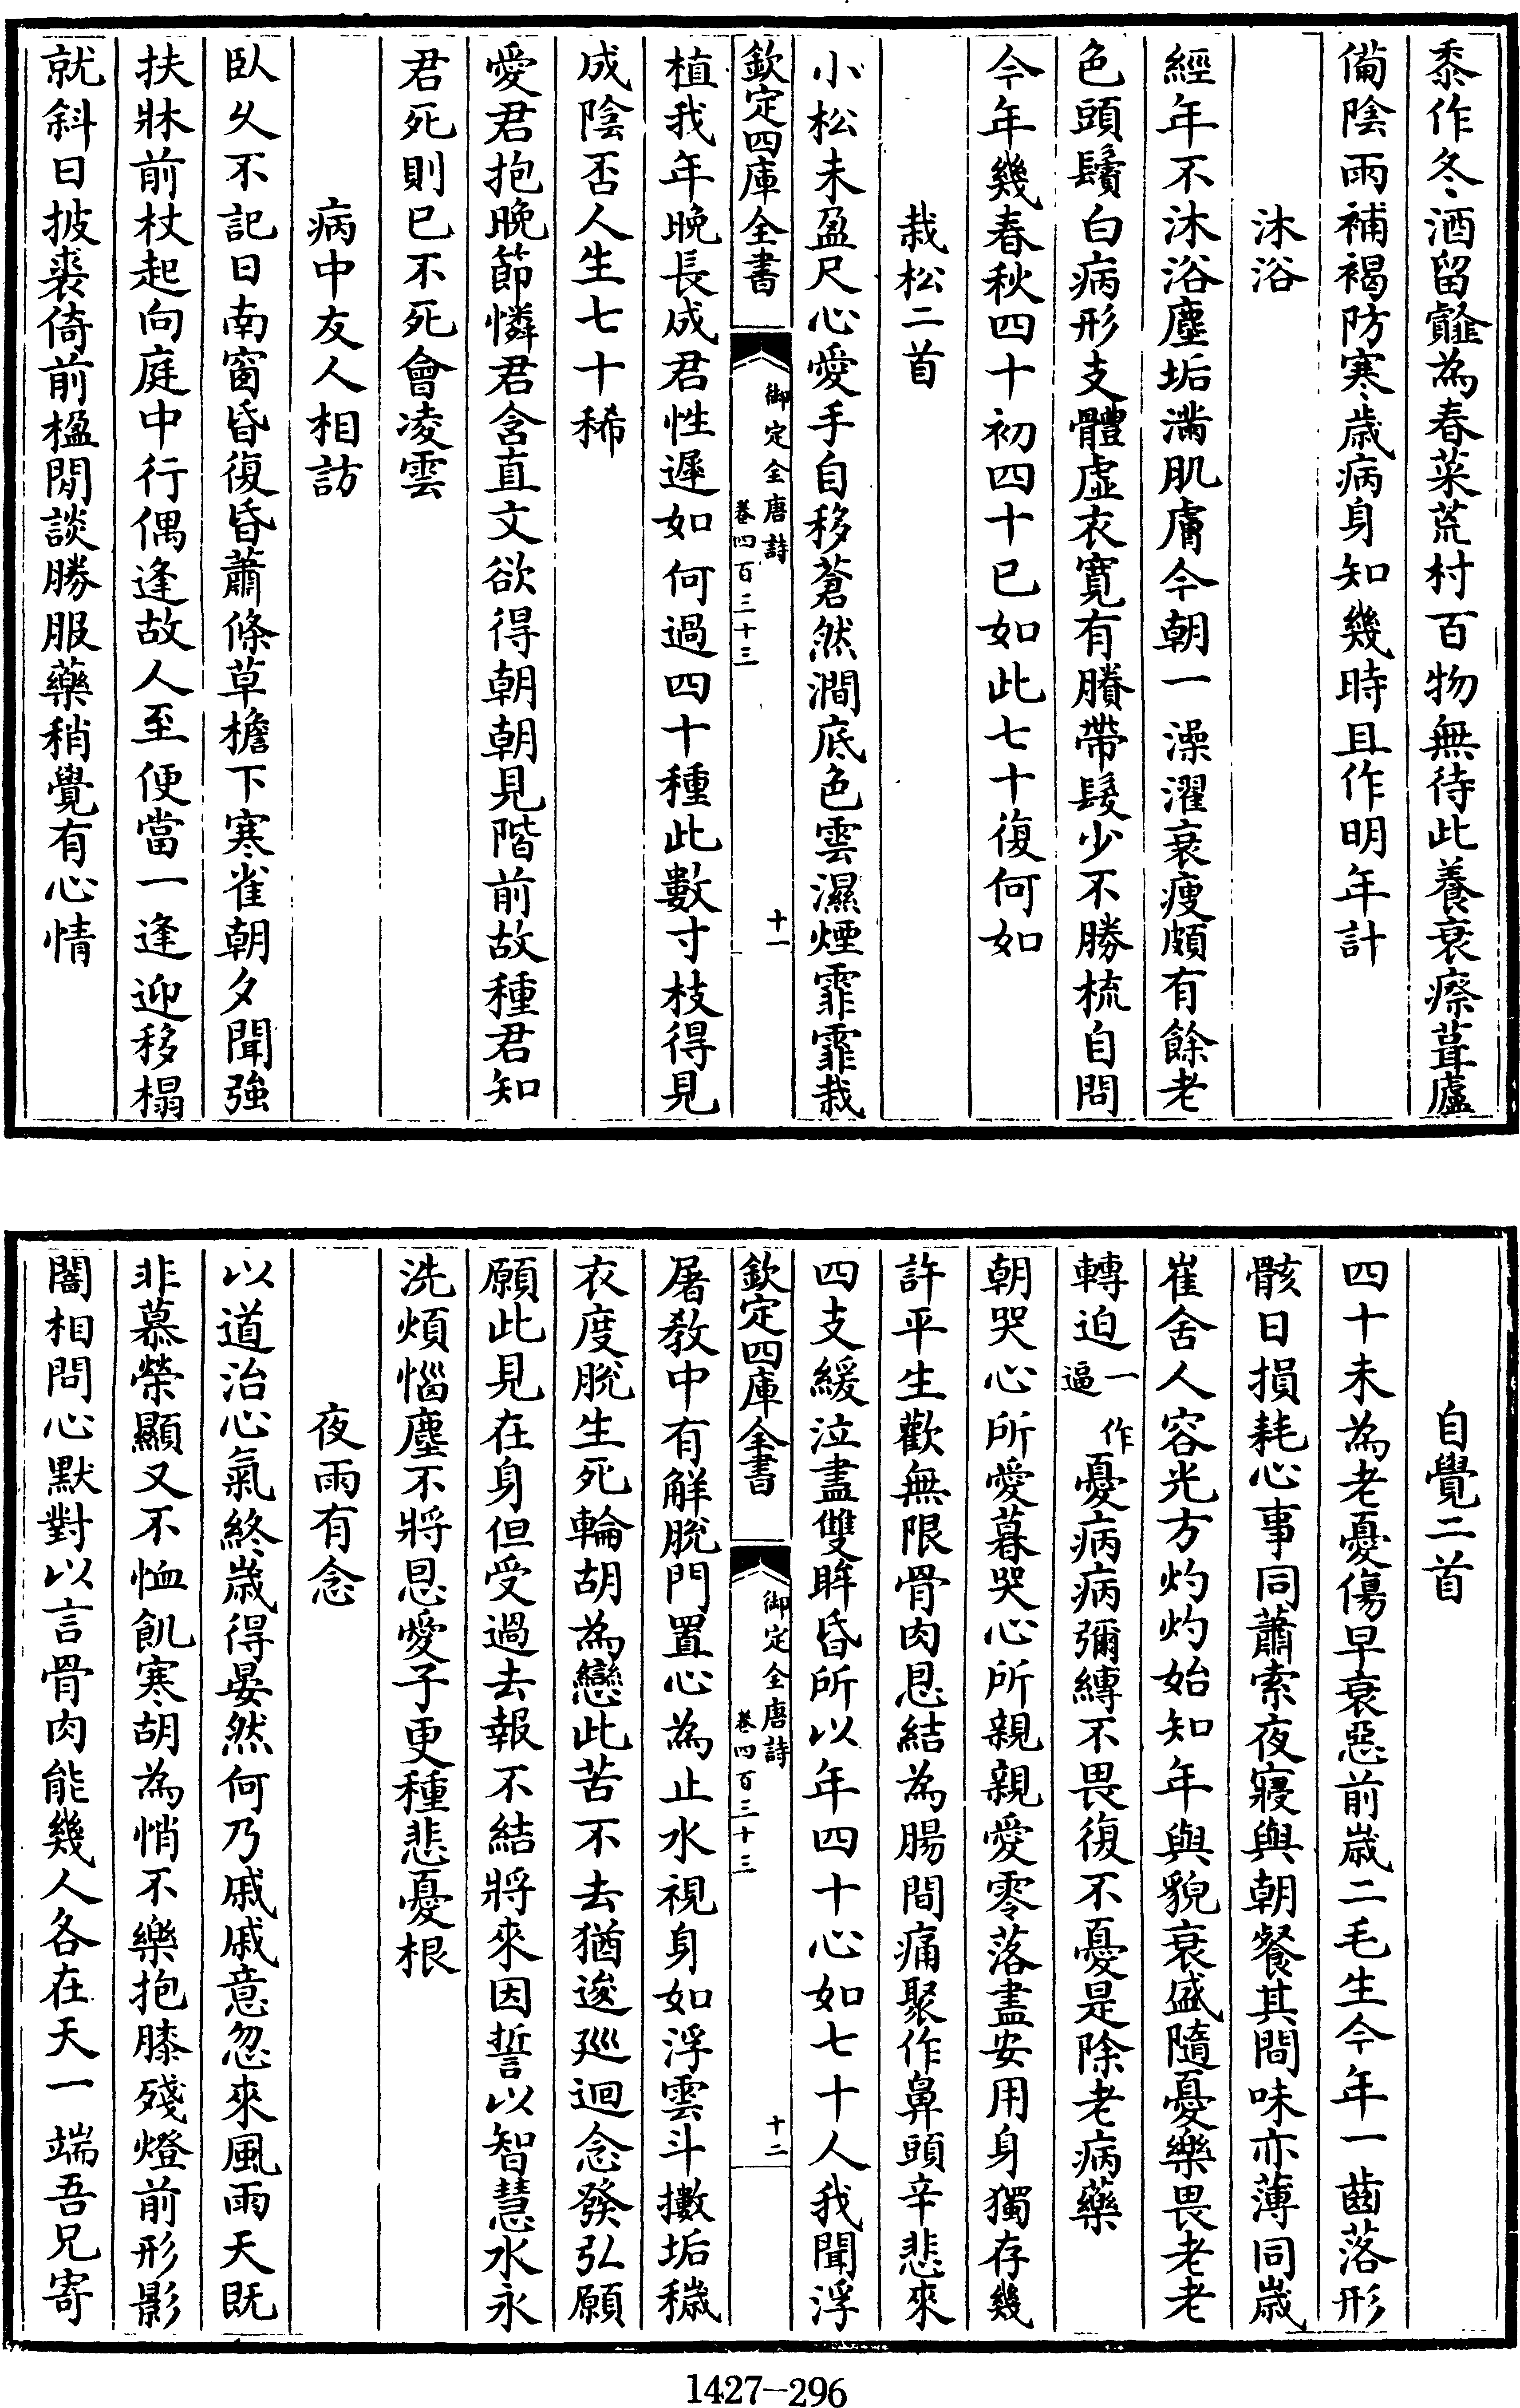 黍作冬酒留韲為春菜荒村百物無待此養衰瘵葺廬
備陰雨補褐防寒歲病身知幾時且作明年計
沐浴
經年不沐浴塵垢滿肌膚今朝一澡濯衰瘦頗有餘老
色頭鬢白病形支體虛衣寬有賸帶髮少不勝梳自問
今年幾春秋四十初四十已如此七十復何如
栽松二首
小松未盈尺心愛手自移蒼然澗底色雲濕煙霏霏栽
欽定四庫全書
御定全唐詩
卷四百三十三
十一
植我年晚長成君性遲如何過四十種此數寸枝得見
成陰否人生七十稀
愛君抱晚節憐君含直文欲得朝朝見階前故種君知
君死則已不死會凌雲
病中友人相訪
臥久不記日南窗昏復昏蕭條草檐下寒雀朝夕聞強
扶牀前杖起向庭中行偶逢故人至便當一逢迎移榻
就斜日披裘倚前楹閒談勝服藥稍覺有心情
自覺二首
四十未為老憂傷早衰惡前歲二毛生今年一齒落形
骸日損耗心事同蕭索夜寢與朝餐其間味亦薄同歲
崔舍人容光方灼灼始知年與貌衰盛隨憂樂畏老老
轉迫一作逼憂病病彌縛不畏復不憂是除老病藥
朝哭心所愛暮哭心所親親愛零落盡安用身獨存幾
許平生歡無限骨肉恩結為腸間痛聚作鼻頭辛悲來
四支緩泣盡雙眸昏所以年四十心如七十人我聞浮
欽定四庫全書
御定全唐詩
卷四百三十三
十二
屠教中有解脫門置心為止水視身如浮雲斗擻垢穢
衣度脫生死輪胡為戀此苦不去猶逡巡迴念發弘願
願此見在身但受過去報不結將來因誓以智慧水永
洗煩惱塵不將恩愛子更種悲憂根
夜雨有念
以道治心氣終歲得晏然何乃戚戚意忽來風雨天既
非慕榮顯又不恤飢寒胡為悄不樂抱膝殘燈前形影
闇相問心默對以言骨肉能幾人各在天一端吾兄寄
1427-296